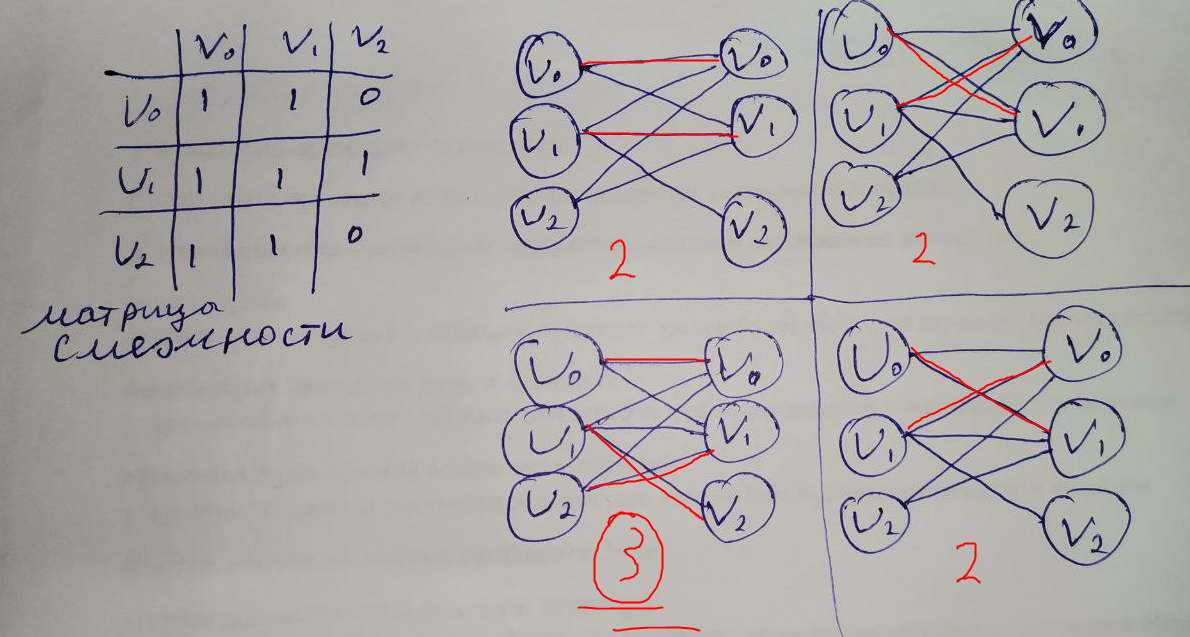 V₀ V₁ V₂
U₀ 1 1 0
U₁ 1 1 1
U₂ 1 1 0
матрица
смежности
U₀ V₀
U₁ V₁
U₂ V₂
2
U₀ V₀
U₁ V₁
U₂ V₂
2
U₀ V₀
U₁ V₁
U₂ V₂
3
U₀ V₀
U₁ V₁
U₂ V₂
2